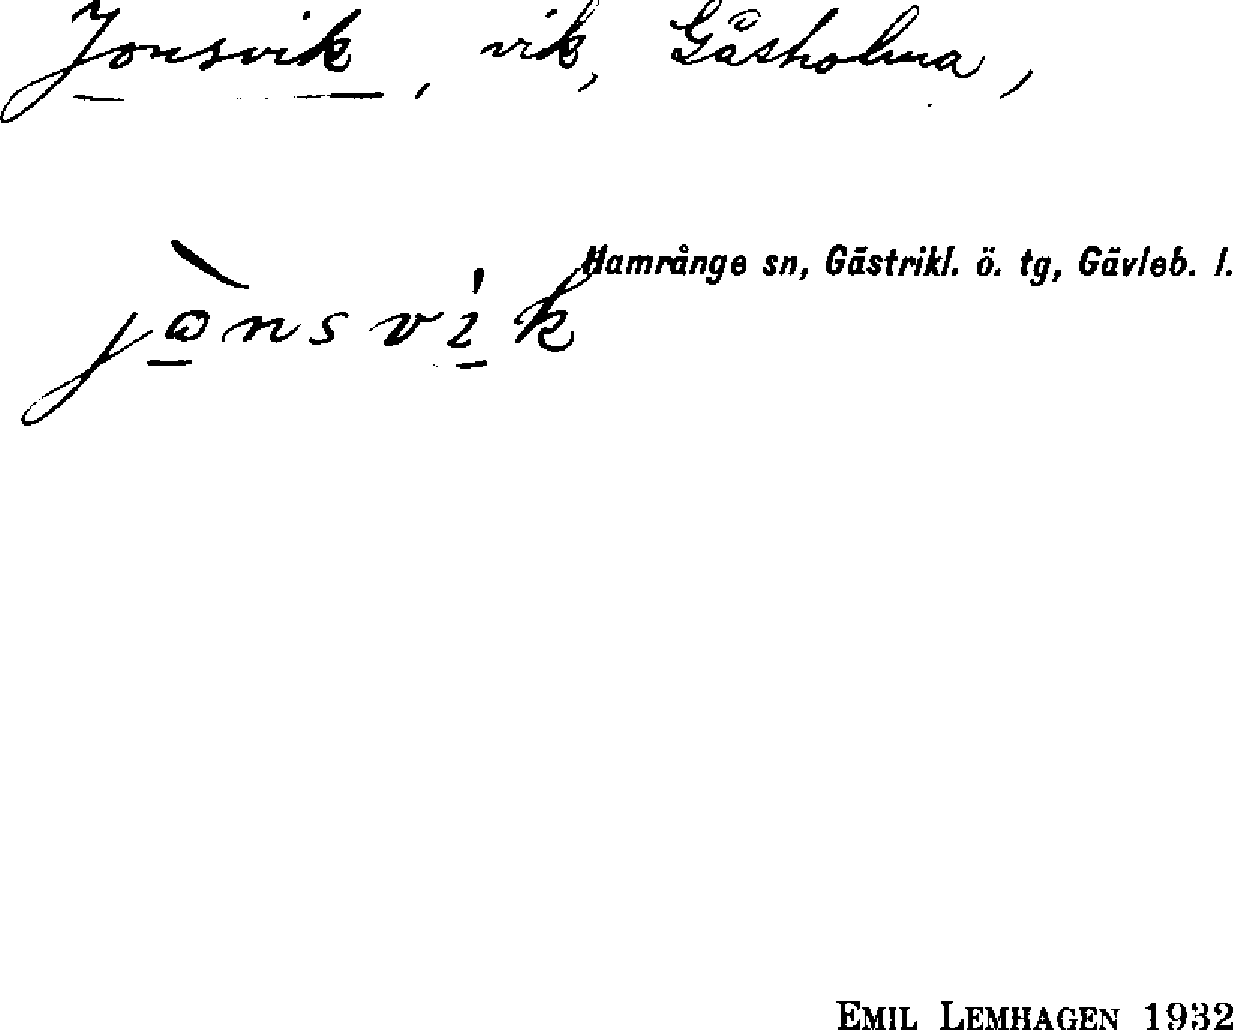 Jonsvik, vik, Gåsholma,
Hamrånge sn, Gästrikl. ö. tg, Gävleb. l.
jònsvik
EMIL LEMHAGEN 1932